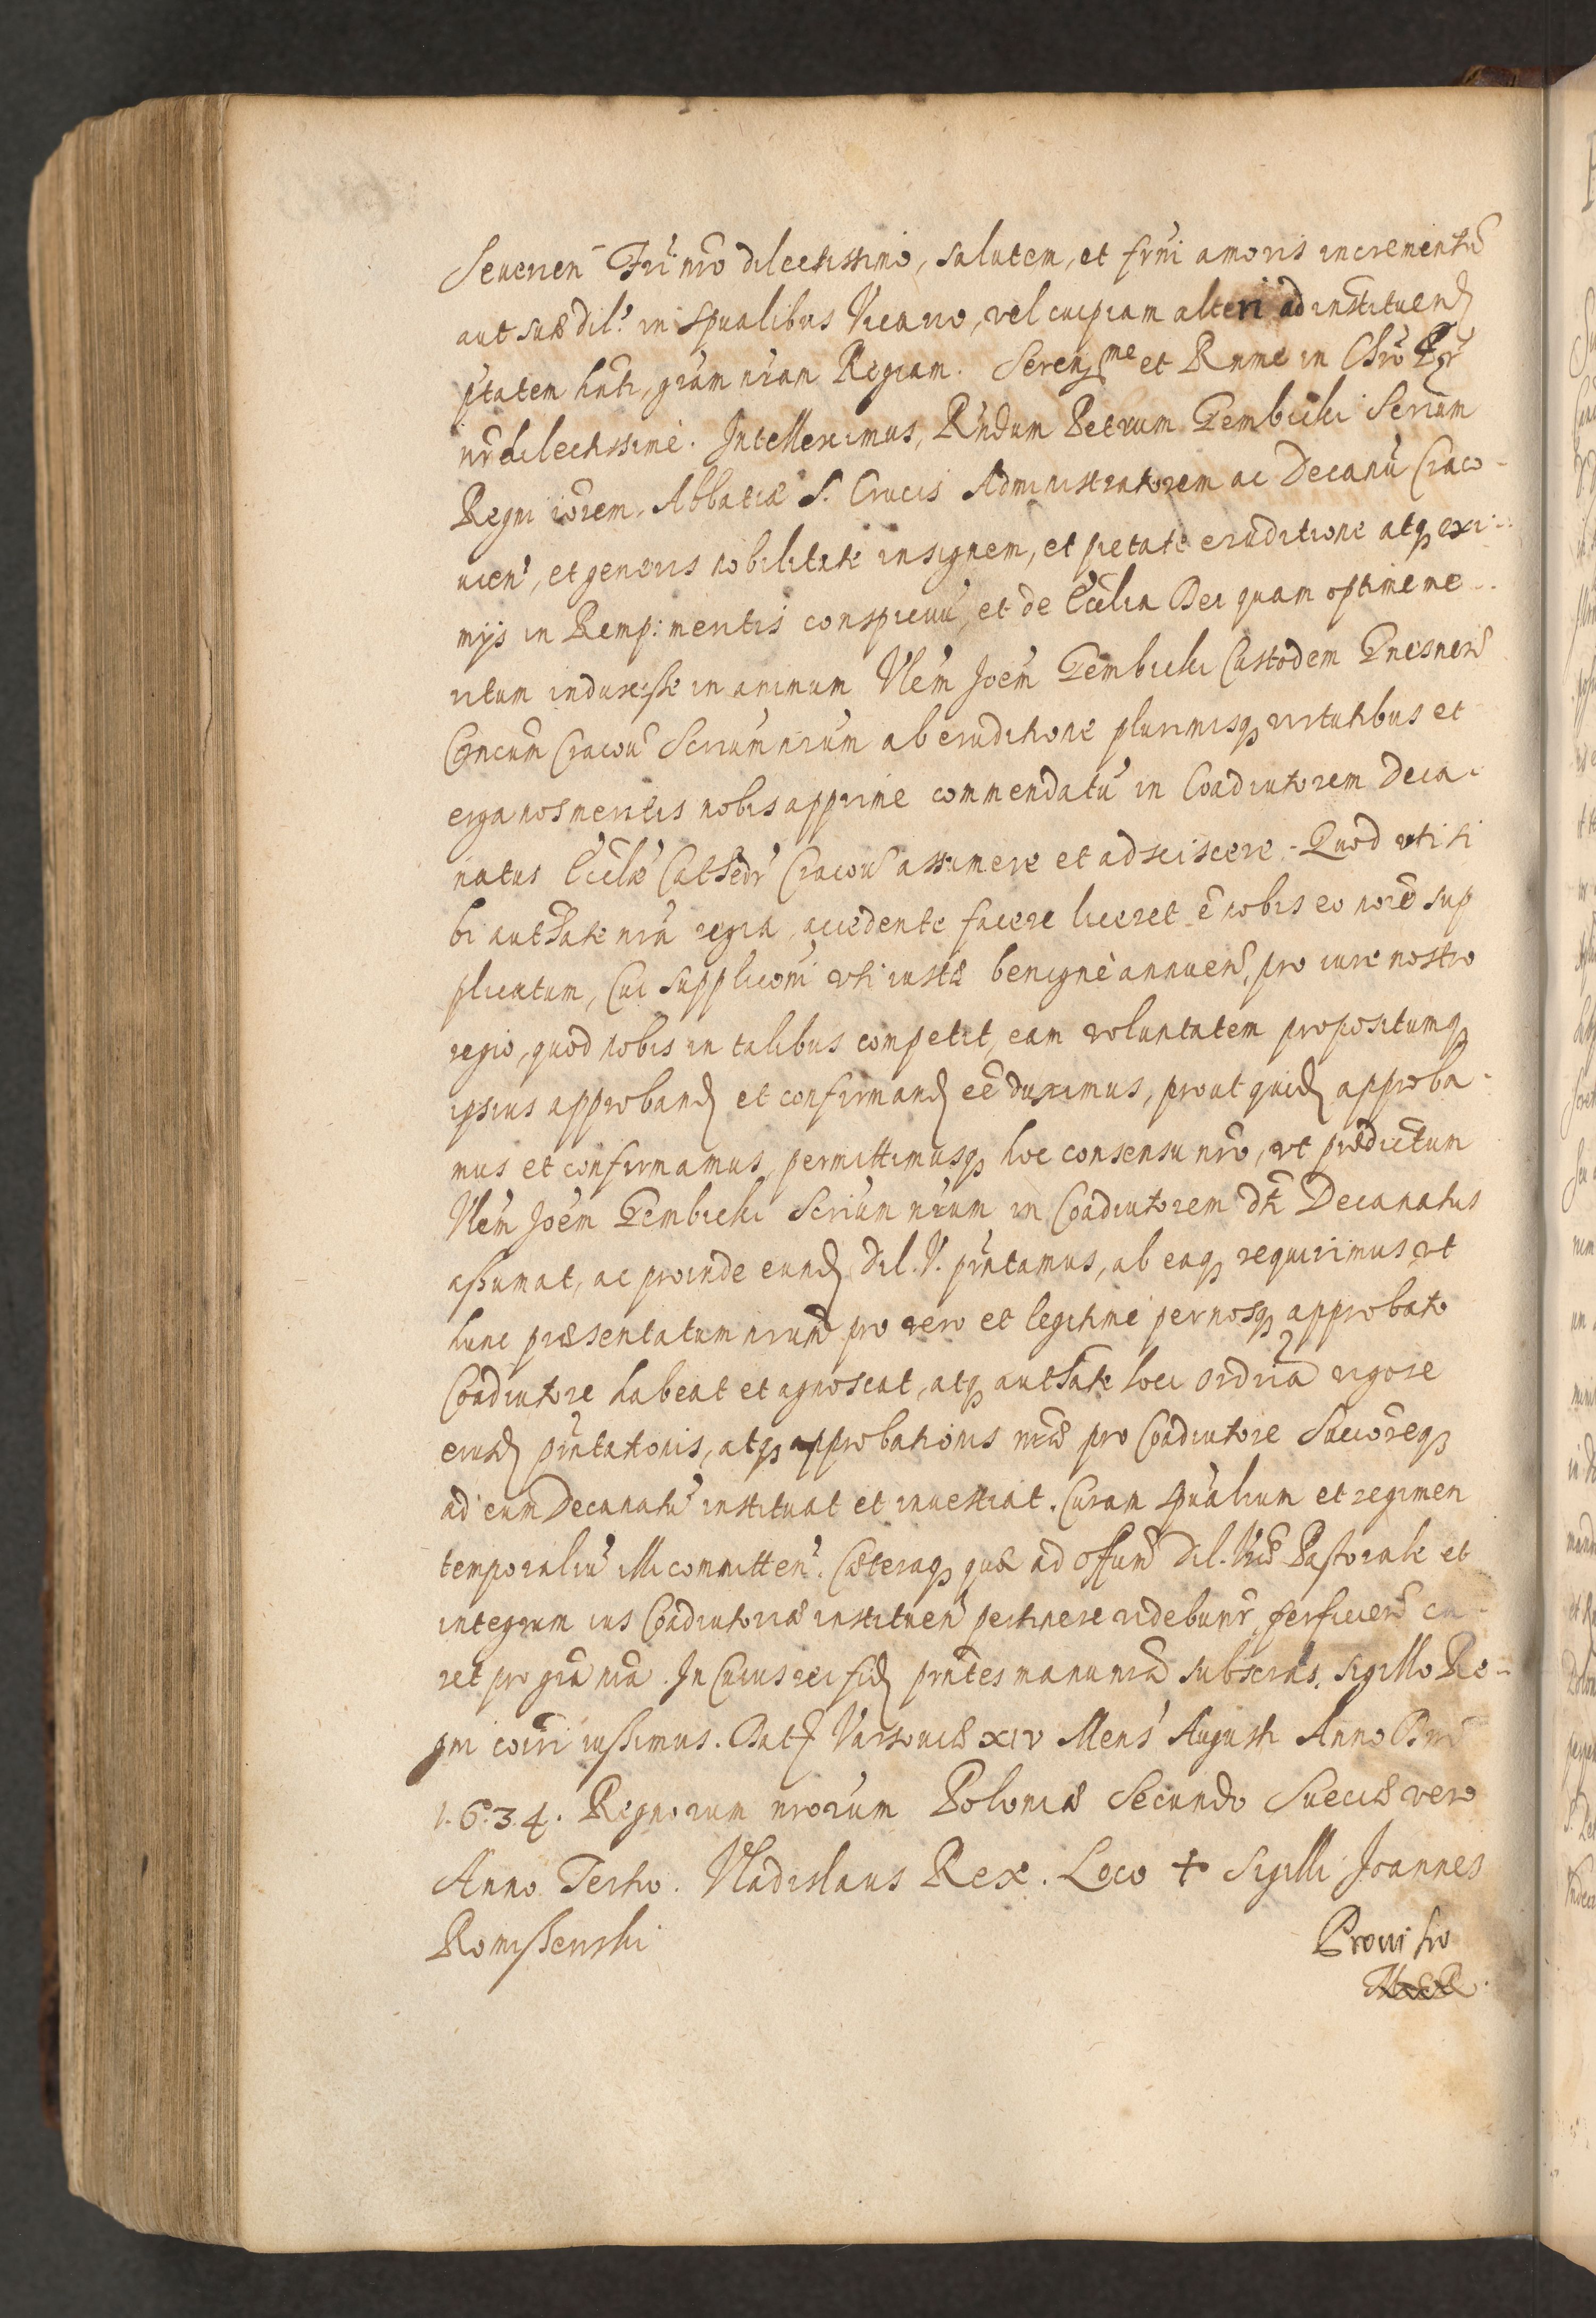 Seuerien Frĩ nrõ dilectissimo, salutem, et frnĩ amoris incrementũ
aut suæ dil: in Spualibus Vicario, vel cuipiam alteri ad instituend
ptatem hnti, grãm nram Regiam. Sereniss^me et Rnme in Chrõ Pr
nr dilectissimè. Intelleximus, Rndum Petrum Gembicki Scriũm
Regni iorem, Abbatiæ S. Crucis Administratorem ac Decanũ Craco-
uien, et generis nobilitate insignem, et pietate eruditione atq exi-
mijs in Remp: meritis conspicuũ, et de Ecclia Dei quam optime me-
ritum induxisse in animum Vlem Joem Gembicki Custodem Gnesnen
Cancum Cracou Scriumnrum ab eruditione plurimisq virtutibus et
erga nos meritis nobis apprime commendatũ in Coadiutorem Deca-
natus Eccliæ Cathedr Cracou assumere et adsciscere. Quod uti si
bi authate nrã regia accedente facere liceret ẽ nobis eo noiẽ sup
plicatum, Cui suppliconi uti iustæ benignè annuen, pro iure nostro
regio, quod nobis in talibus competit, eam voluntatem propositumq
ipsius approband et confirmand eẽ duximus, prout quid approba-
mus et confirmamus, permittimusq hoc consensu nrõ, ut prædictum
Vlem Joem Gembicki Scriũm nrum in Coadiutorem dti Decanatus
assumat, ac proinde eund dil. V. pñtamus, ab eaq requirimus ut
hunc præsentatum nrum pro vero et legitime per nosq approbato
Coadiutore habeat et agnoscat, atq authate loci ordria vigore
eiusd pñtationis, atq approbationis nræ pro Coadiutore Succoreq
ad eum Decanatũ instituat et inuestiat. Curam spualium et regimen
temporaliũ illi committen. Cæteraq quæ ad offum dil. Vræ Pastorale et
integrum ius Coadiutoriæ instituen pertinere videbunr, perficien cu-
ret pro grã nrã. In Cuius rei fid pñtes manu nrã subscras. sigillo Re-
gni coiri iussimus. Dat Varsouiæ XIV Mens Augusti Anno Dnĩ
1.6.3.4. Regnorum nrorum Poloniæ Secundo Sueciæ vero
Anno Tertio. Vladislaus Rex. Loco + Sigilli Joannes
Romiszewski
Prouisio